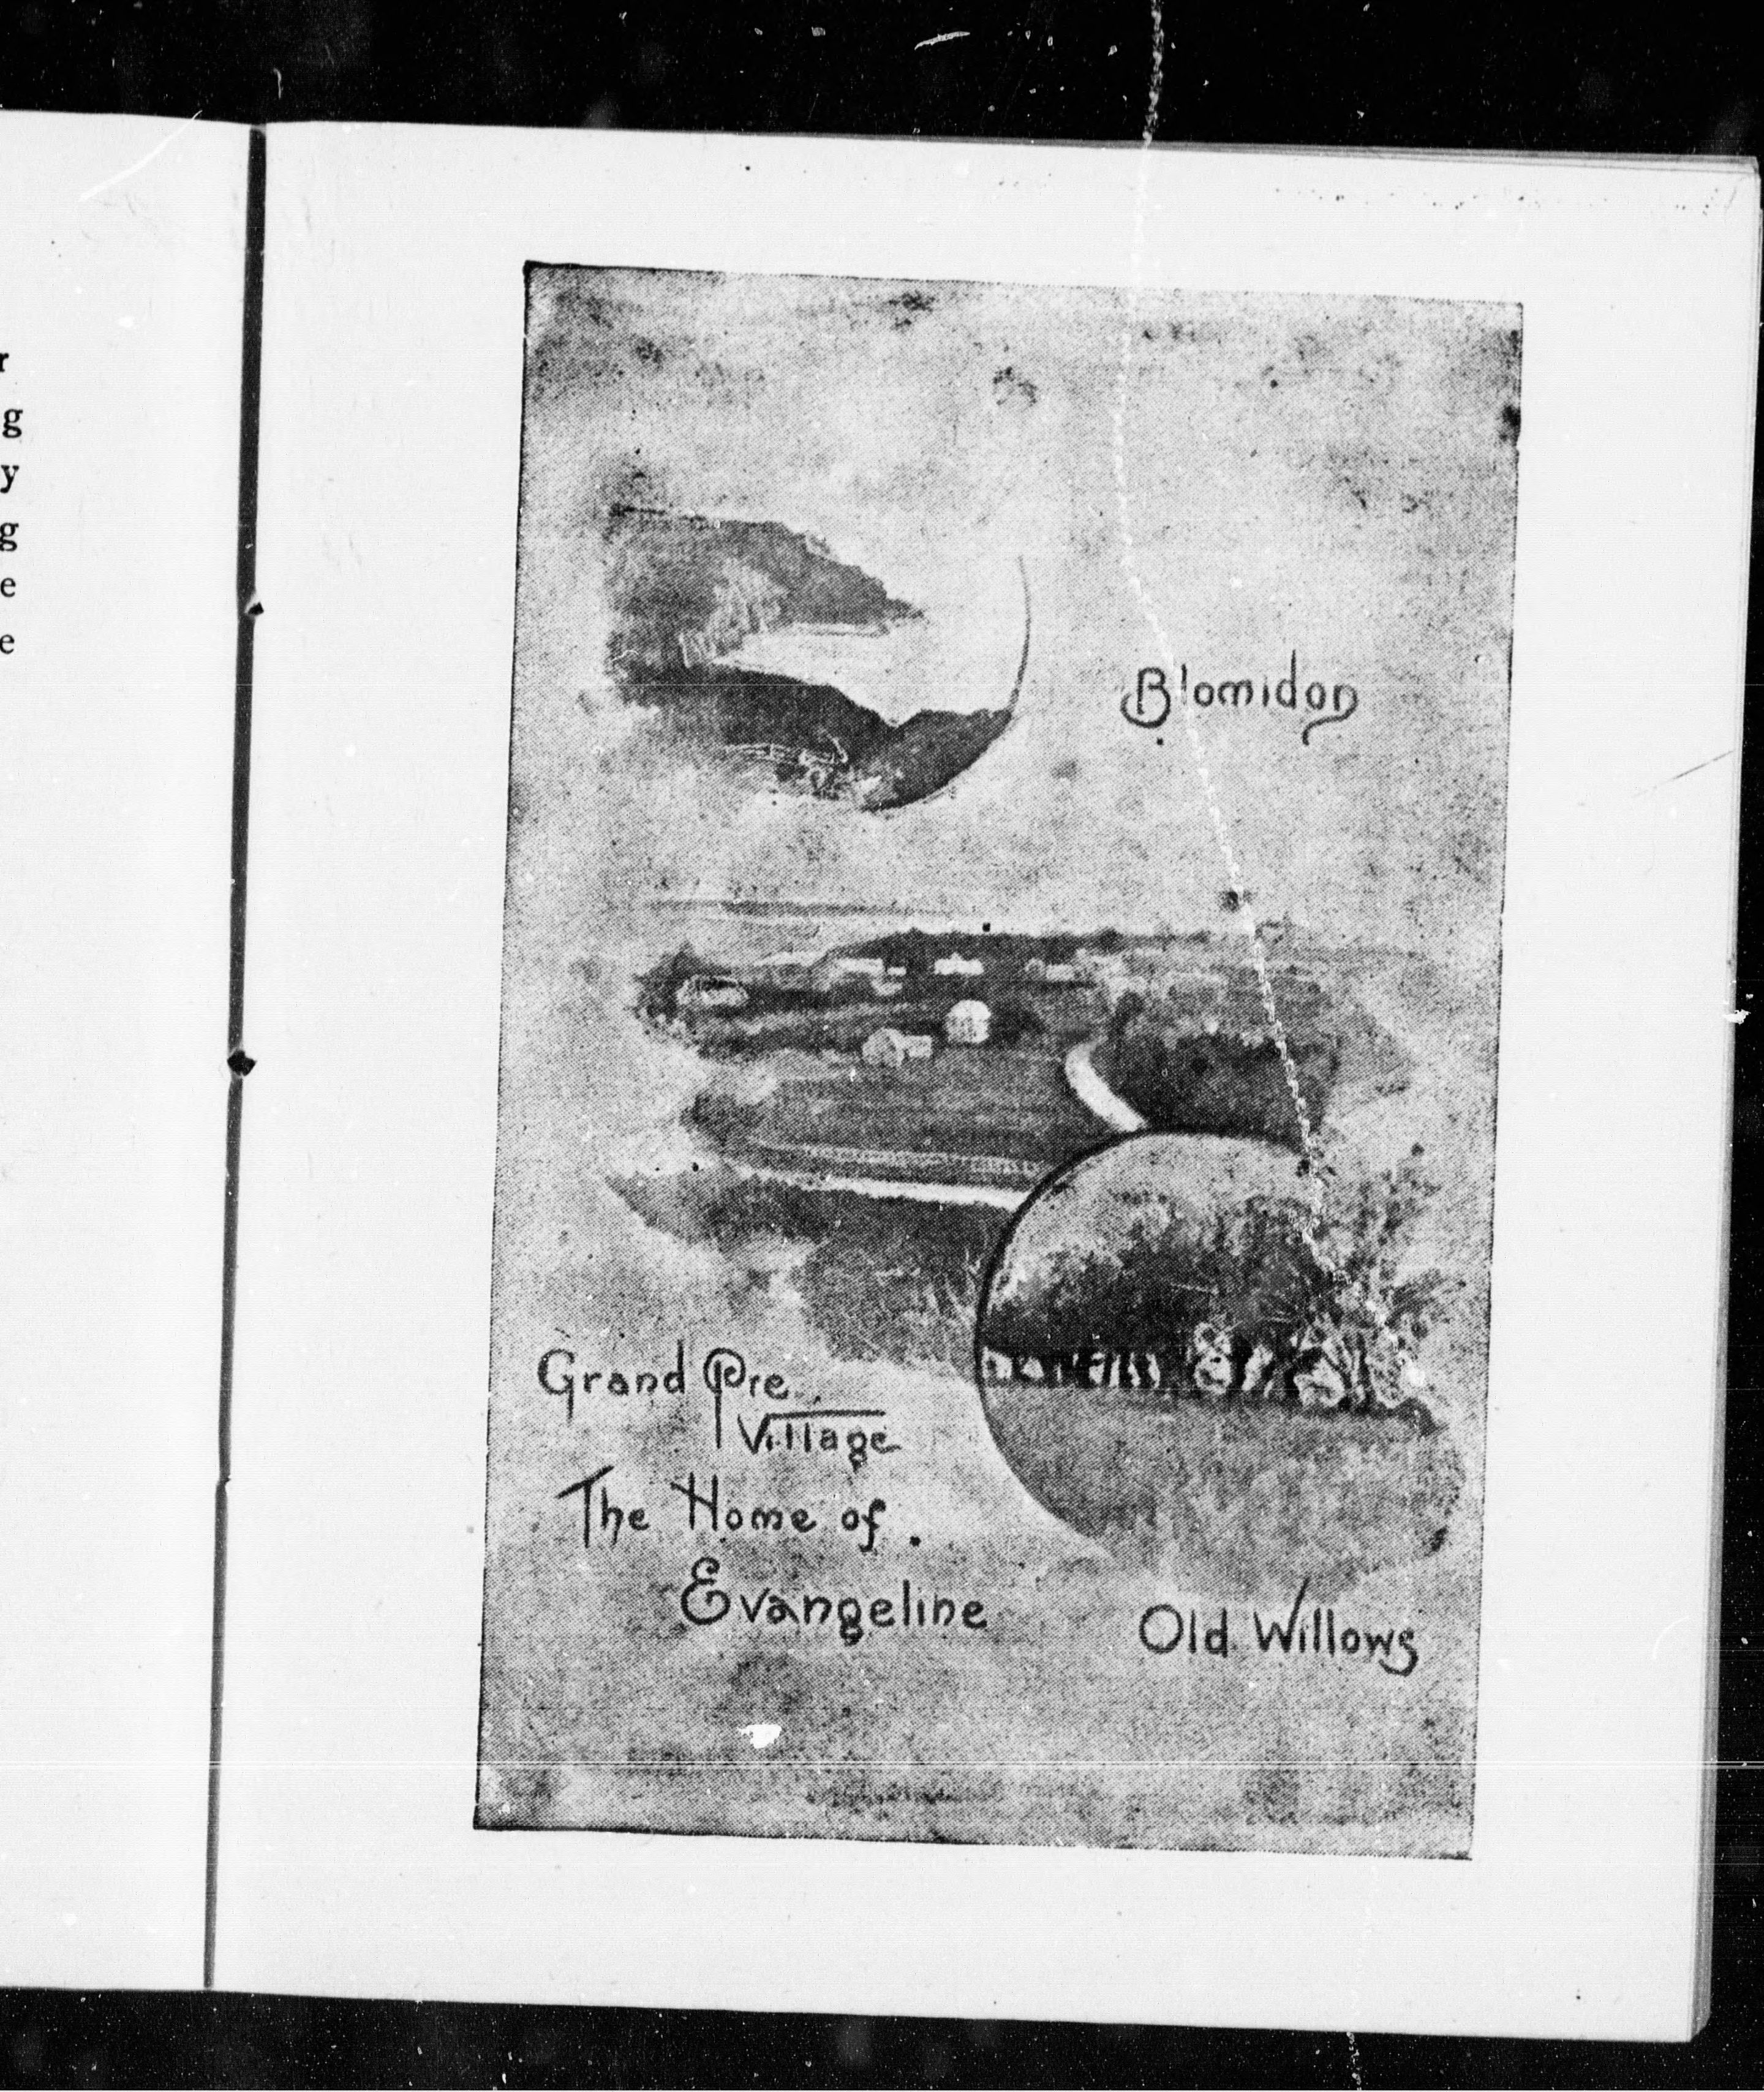 r
g
y
g
e
e
Blomidon
Grand Pre
Village
The Home of
Evangeline
Old Willows